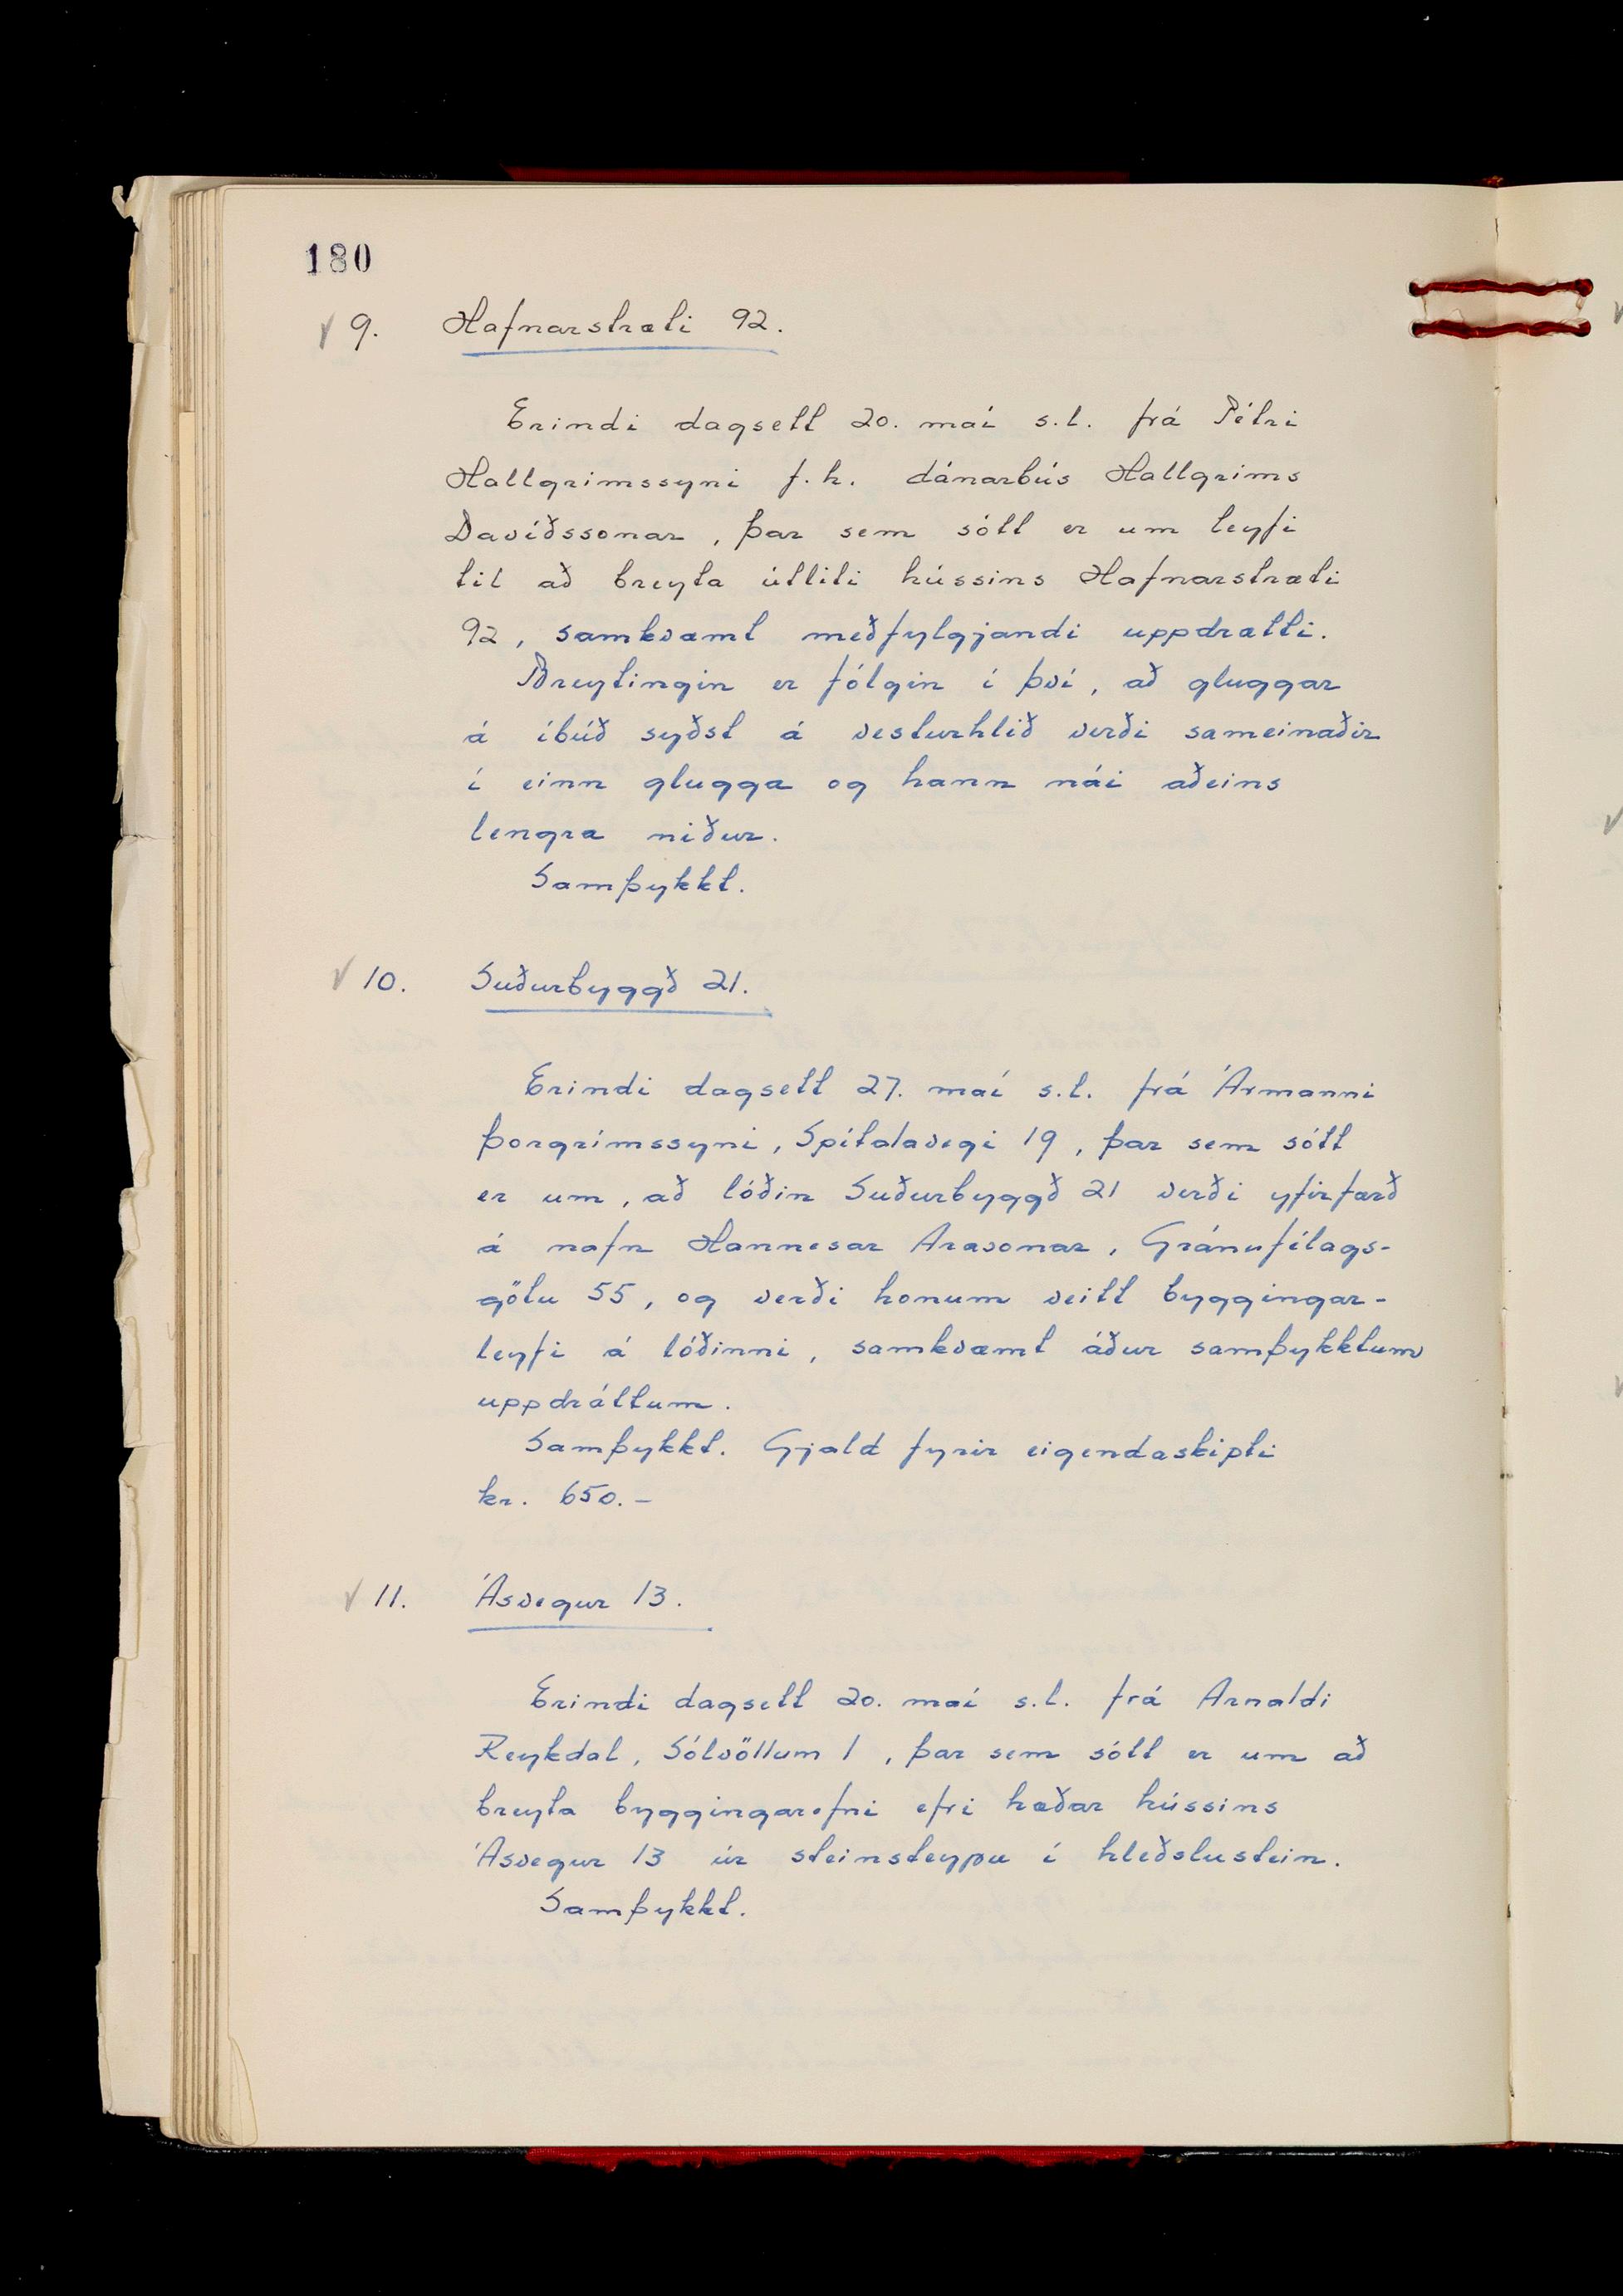 180
✓ 9. Hafnarstræti 92.
Erindi dagsett 20. maí s.l. frá Pétri
Hallgrímssyni f.h. dánarbús Hallgríms
Davíðssonar, þar sem sótt er um leyfi
til að breyta útliti hússins Hafnarstræti
92, samkvæmt meðfylgjandi uppdrætti.
Breytingin er fólgin í því, að gluggar
á íbúð syðst á vesturhlið verði sameinaðir
í einn glugga og hann nái aðeins
lengra niður.
Samþykkt.
✓ 10. Suðurbyggð 21.
Erindi dagsett 27. maí s.l. frá Ármanni
Þorgrímssyni, Spítalavegi 19, þar sem sótt
er um, að lóðin Suðurbyggð 21 verði yfirfærð
á nafn Hannesar Arasonar, Gránufélags-
götu 55, og verði honum veitt byggingar-
leyfi á lóðinni, samkvæmt áður samþykktum
uppdráttum.
Samþykkt. Gjald fyrir eigendaskipti
kr. 650.-
✓ 11. Ásvegur 13.
Erindi dagsett 20. maí s.l. frá Arnaldi
Reykdal, Sólvöllum 1, þar sem sótt er um að
breyta byggingarefni efri hæðar hússins
Ásvegur 13 úr steinsteypu í hleðslustein.
Samþykkt.